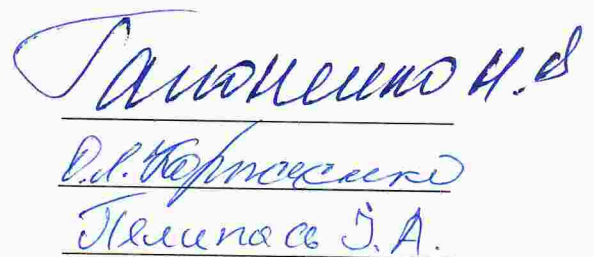 Гапоненко Н.В
О.Л. Корнієнко
Пелипась І.А.